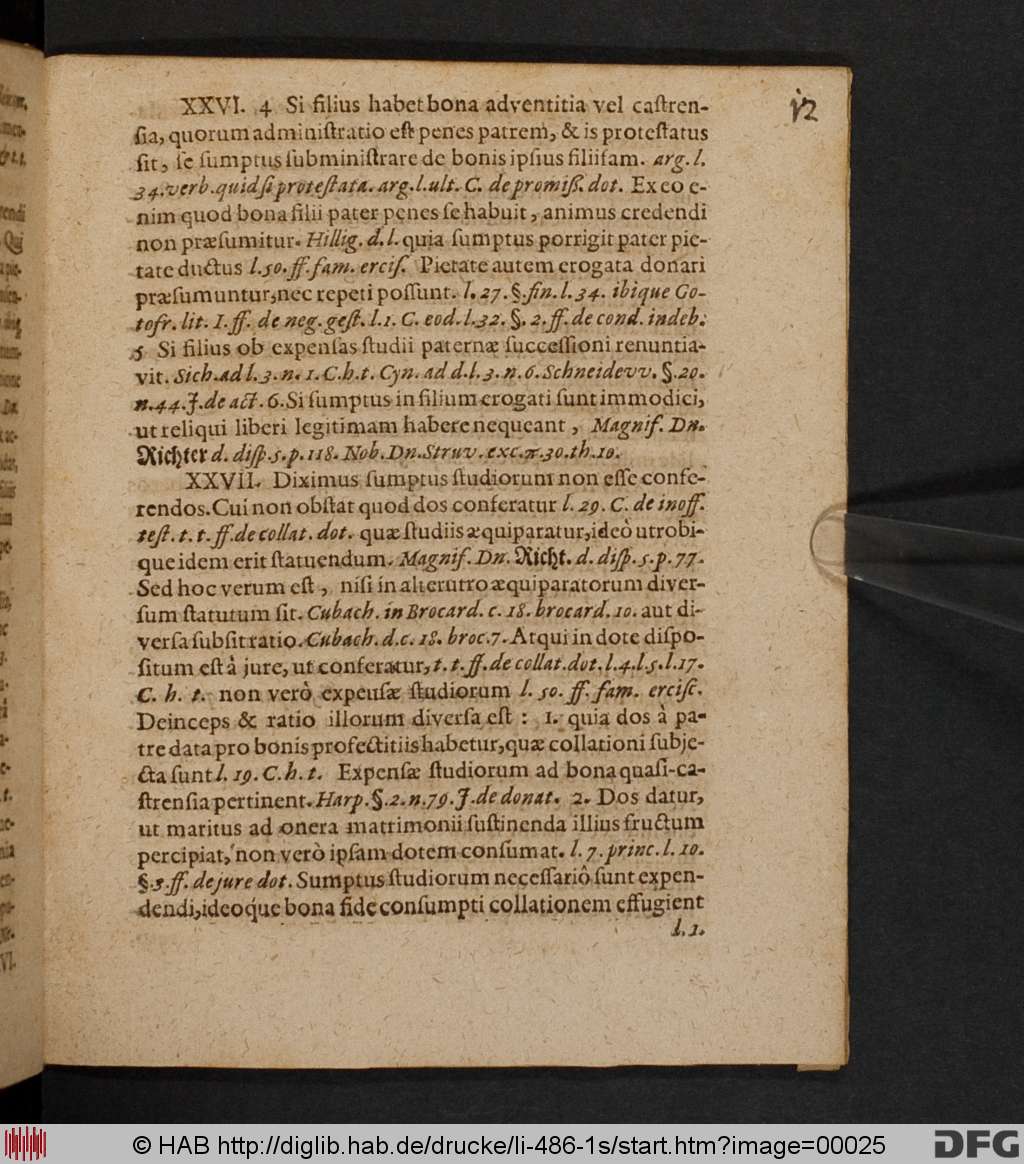 12
XXVI. 4 Si filius habet bona adventitia vel castren-
sia, quorum administratio est penes patrem, & is protestatus
sit, se sumptus subministrare de bonis ipsius filiifam. arg. l.
34. verb. quid si protestata. arg. l. ult. C. de promiss. dot. Ex eo e-
nim quod bona filii pater penes se habuit, animus credendi
non præsumitur. Hillig. d. l. quia sumptus porrigit pater pie-
tate ductus l. 50. ff. fam. ercis. Pietate autem erogata donari
præsumuntur, nec repeti possunt. l. 27. §. fin. l. 34. ibique Go-
tofr. lit. I. ff. de neg. gest. l. 1. C. eod. l. 32. §. 2. ff. de cond. indeb.
5 Si filius ob expensas studii paternæ successioni renuntia-
vit. Sich. ad l. 3. n. 1. C. h. t. Cyn. ad d. l. 3. n. 6. Schneidevv. §. 20.
n. 44. J. de act. 6. Si sumptus in filium erogati sunt immodici,
ut reliqui liberi legitimam habere nequeant, Magnif. Dn.
Richter d. disp. 5. p. 118. Nob. Dn. Struv. exc. π. 30. th. 10.
XXVII. Diximus sumptus studiorum non esse confe-
rendos. Cui non obstat quod dos conferatur l. 29. C. de inoff.
test. t. t. ff. de collat. dot. quæ studiis æquiparatur, ideò utrobi-
que idem erit statuendum. Magnif. Dn. Richt. d. disp. 5. p. 77.
Sed hoc verum est, nisi in alterutro æquiparatorum diver-
sum statutum sit. Cubach. in Brocard. c. 18. brocard. 10. aut di-
versa subsit ratio. Cubach. d. c. 18. broc. 7. Atqui in dote dispo-
situm est à jure, ut conferatur, t. t. ff. de collat. dot. l. 4. l. 5. l. 17.
C. h. t. non verò expensæ studiorum l. 50. ff. fam. ercisc.
Deinceps & ratio illorum diversa est: 1. quia dos à pa-
tre data pro bonis profectitiis habetur, quæ collationi subje-
cta sunt l. 19. C. h. t. Expensæ studiorum ad bona quasi-ca-
strensia pertinent. Harp. §. 2. n. 79. J. de donat. 2. Dos datur,
ut maritus ad onera matrimonii sustinenda illius fructum
percipiat, non verò ipsam dotem consumat. l. 7. princ. l. 10.
§. 3. ff. de jure dot. Sumptus studiorum necessariò sunt expen-
dendi, ideoque bona fide consumpti collationem effugient
l. 1.
© HAB http://diglib.hab.de/drucke/li-486-1s/start.htm?image=00025
DFG